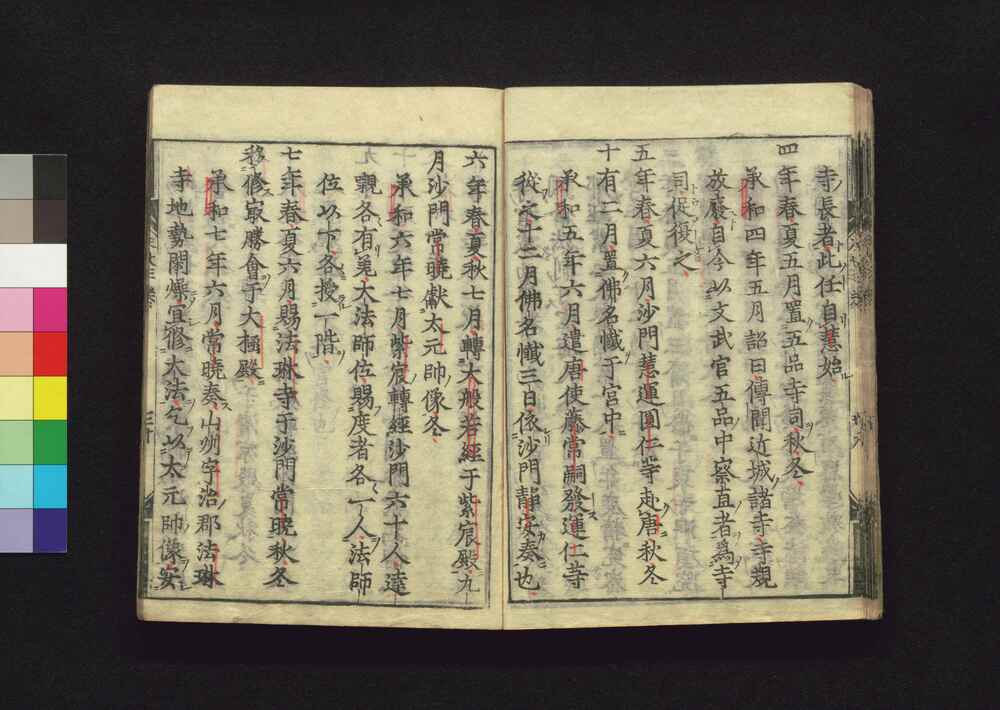 寺長者此任自慧始
四年春夏五月置五品寺司秋冬
承和四年五月詔曰傳聞近城諸寺寺観
放廢自今以文武官五品中察直者爲寺
司促復之
五年春夏六月沙門慧運圓仁等赴唐秋冬
十有二月置佛名懺于宮中
承和五年六月遣唐使藤常嗣發運仁等
從之十二月佛名懺三日依沙門靜安奏也
六年春夏秋七月轉大般若經于紫宸殿九
月沙門常曉獻太元帥像冬
承和六年七月紫宸轉經沙門六十人達
嚫各有差大法師位賜度者各一人法師
位以下各授一階
七年春夏六月賜法琳寺于沙門常曉秋冬
移修㝡勝會于大極殿
承和七年六月常曉奏山州宇治郡法琳
寺地勢閑燥宜修大法乞以太元帥像安